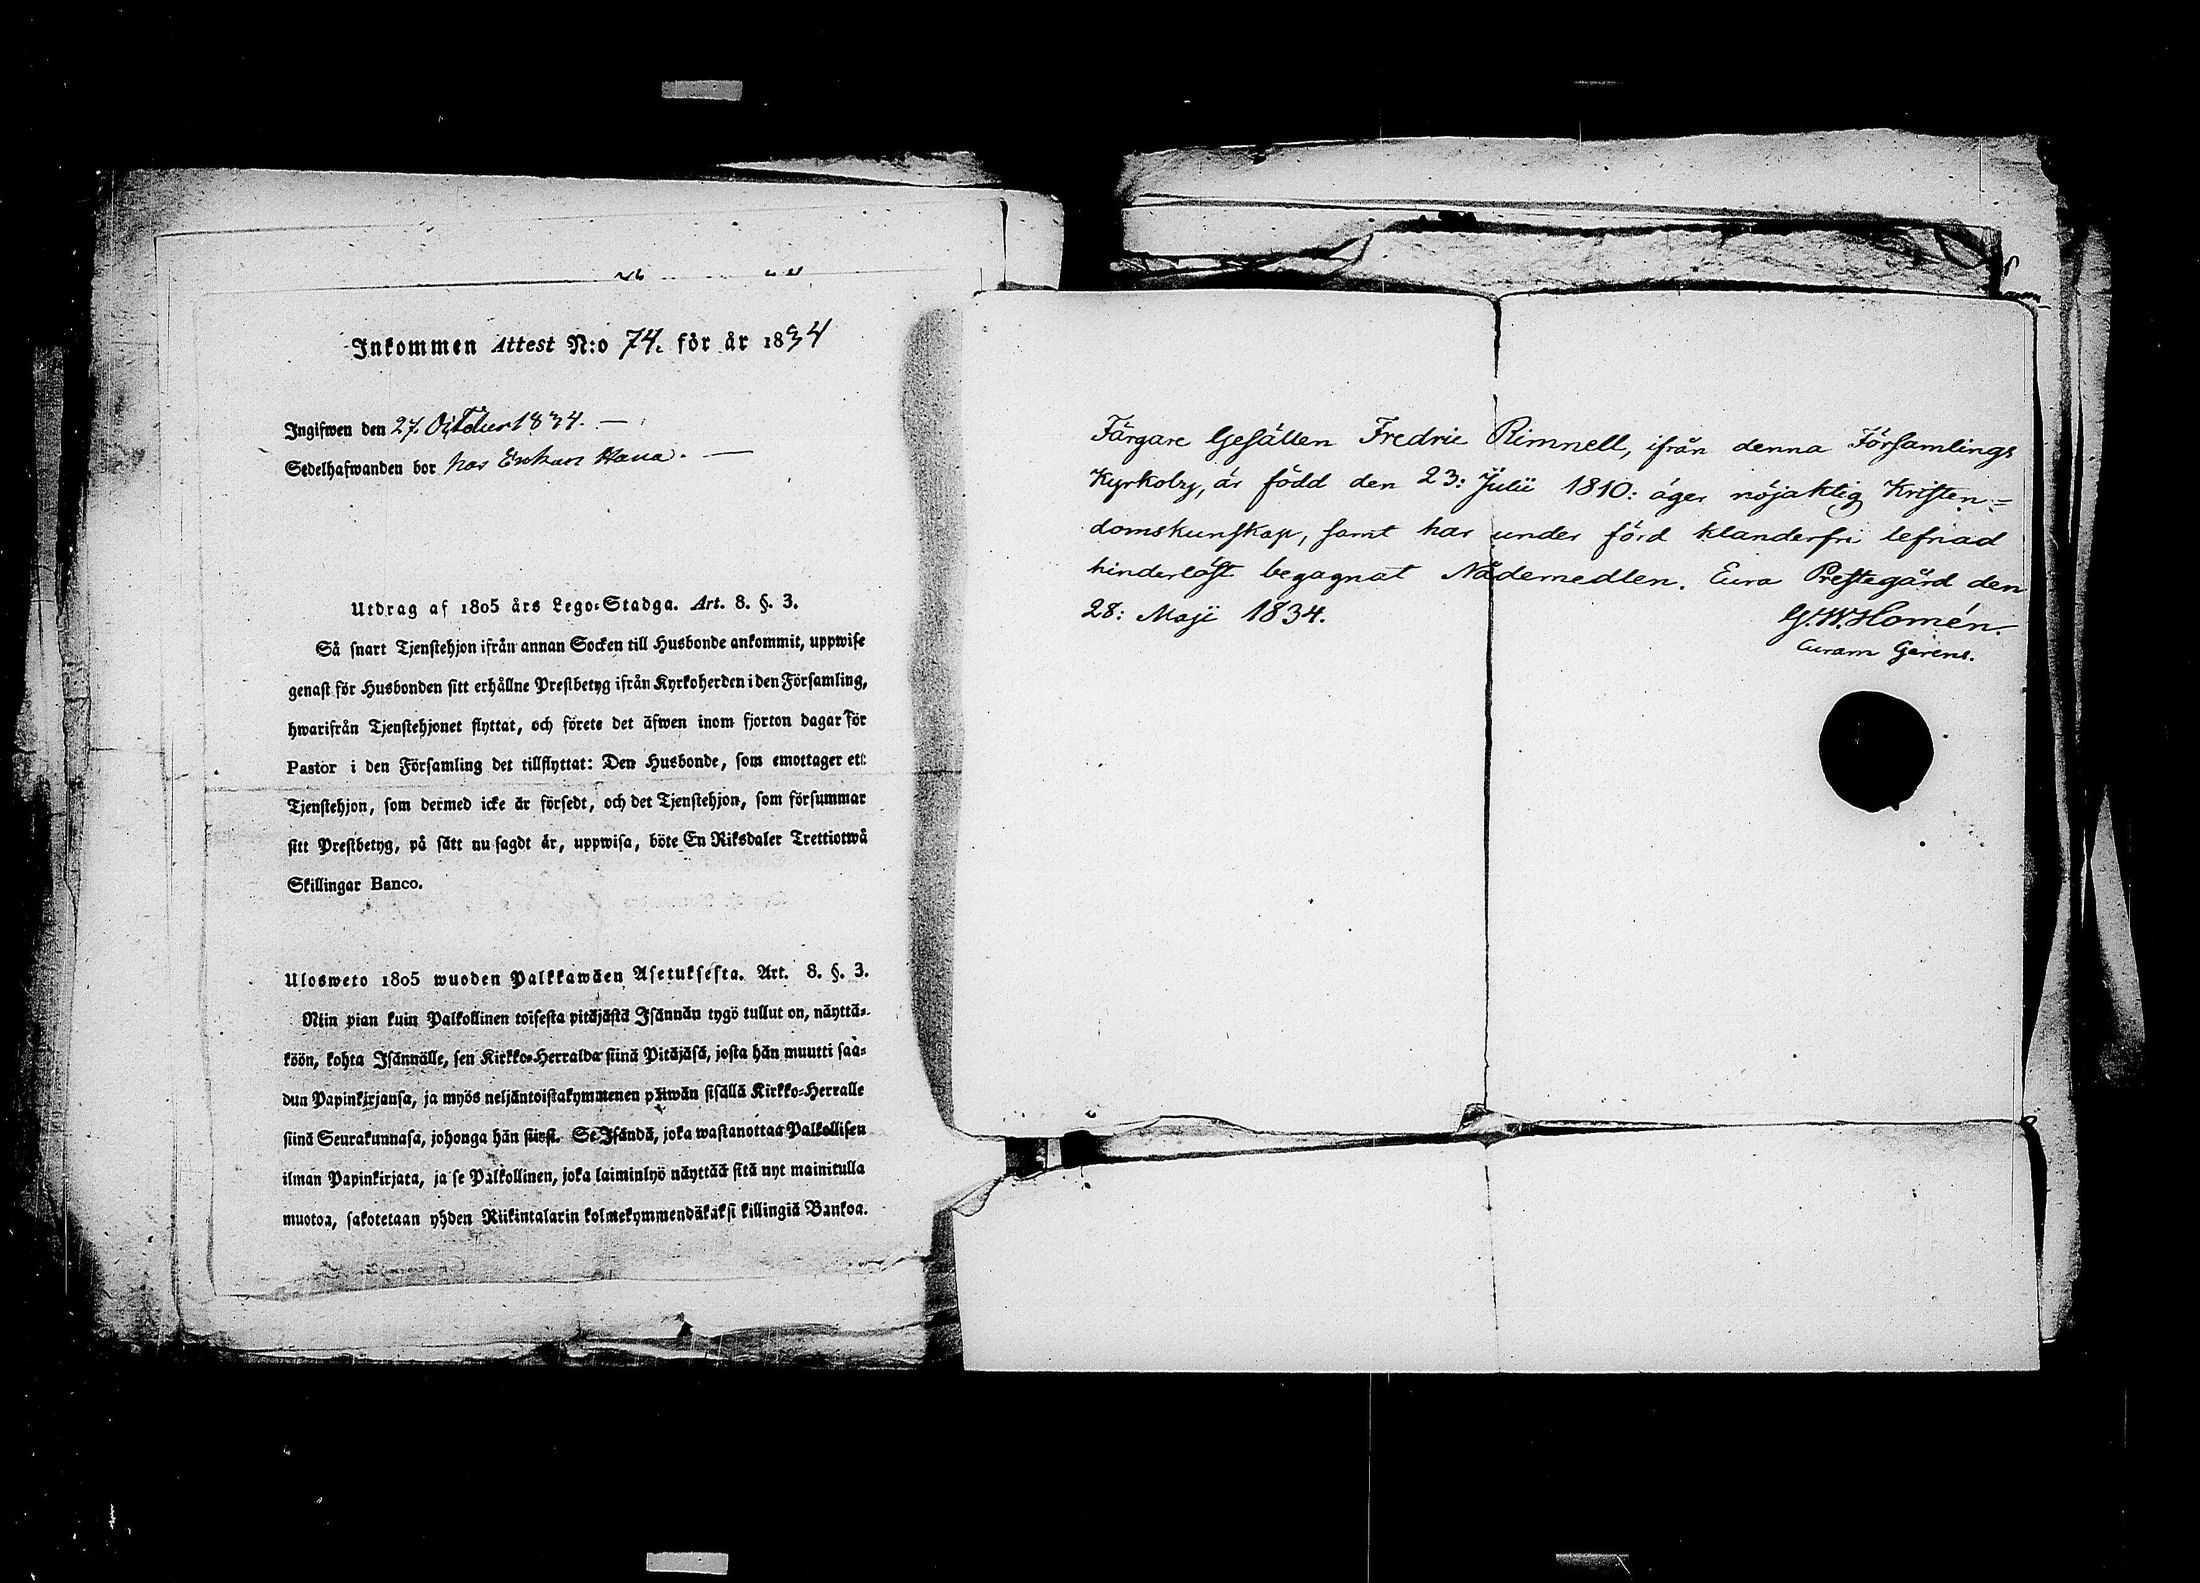 Inkommen Attest N:o 74. för år 1834
Ingifwen den 27. October 1834. —
Sedelhafwanden bor hos Enkan —
Utdrag af 1805 års Lego-Stadga. Art. 8. §. 3.
Så snart Tjenstehjon ifrån annan Socken till Husbonde ankommit, uppwise
genast för Husbonden sitt erhållne Prestbetyg ifrån Kyrkoherden i den Församling,
hwarifrån Tjenstehjonet flyttat, och förete det äfwen inom fjorton dagar för
Pastor i den Församling det tillflyttat: Den Husbonde, som emottager ett
Tjenstehjon, som dermed icke är försedt, och det Tjenstehjon, som försummar
sitt Prestbetyg, på sätt nu sagdt är, uppwisa, böte En Riksdaler Trettiotwå
Skillingar Banco.
Ulosweto 1805 wuoden Palkkawäen Asetuksesta. Art. 8. §. 3.
Niin pian kuin Palkollinen toisesta pitäjästä Isännän tygö tullut on, näyttä-
köön, kohta Isännälle, sen Kirkko-Herralda siinä Pitäjäsä, josta hän muutti saa-
dun Papinkirjansa, ja myös neljäntoistakymmenen päiwän sisällä Kirkko-Herralle
siinä Seurakunnasa, johonga hän siirsi. Se Isändä, joka wastanottaa Palkollisen
ilman Papinkirjata, ja se Palkollinen, joka laiminlyö näyttää sitä nyt mainitulla
muotoa, sakotetaan yhden Riikintalarin kolmekymmendäkaksi killingiä Bankoa.
Färgare Gesällen Fredric Rimnell, ifrån denna Församlings
Kyrkoby, är född den 23: Julii 1810: äger nöjaktig Kristen=
domskunskap, samt har under förd klanderfri lefnad
hinderlöst begagnat Nådemedlen. Eura Prestegård den
28: Maji 1834.
G. W. Homén.
Curam Gerens.